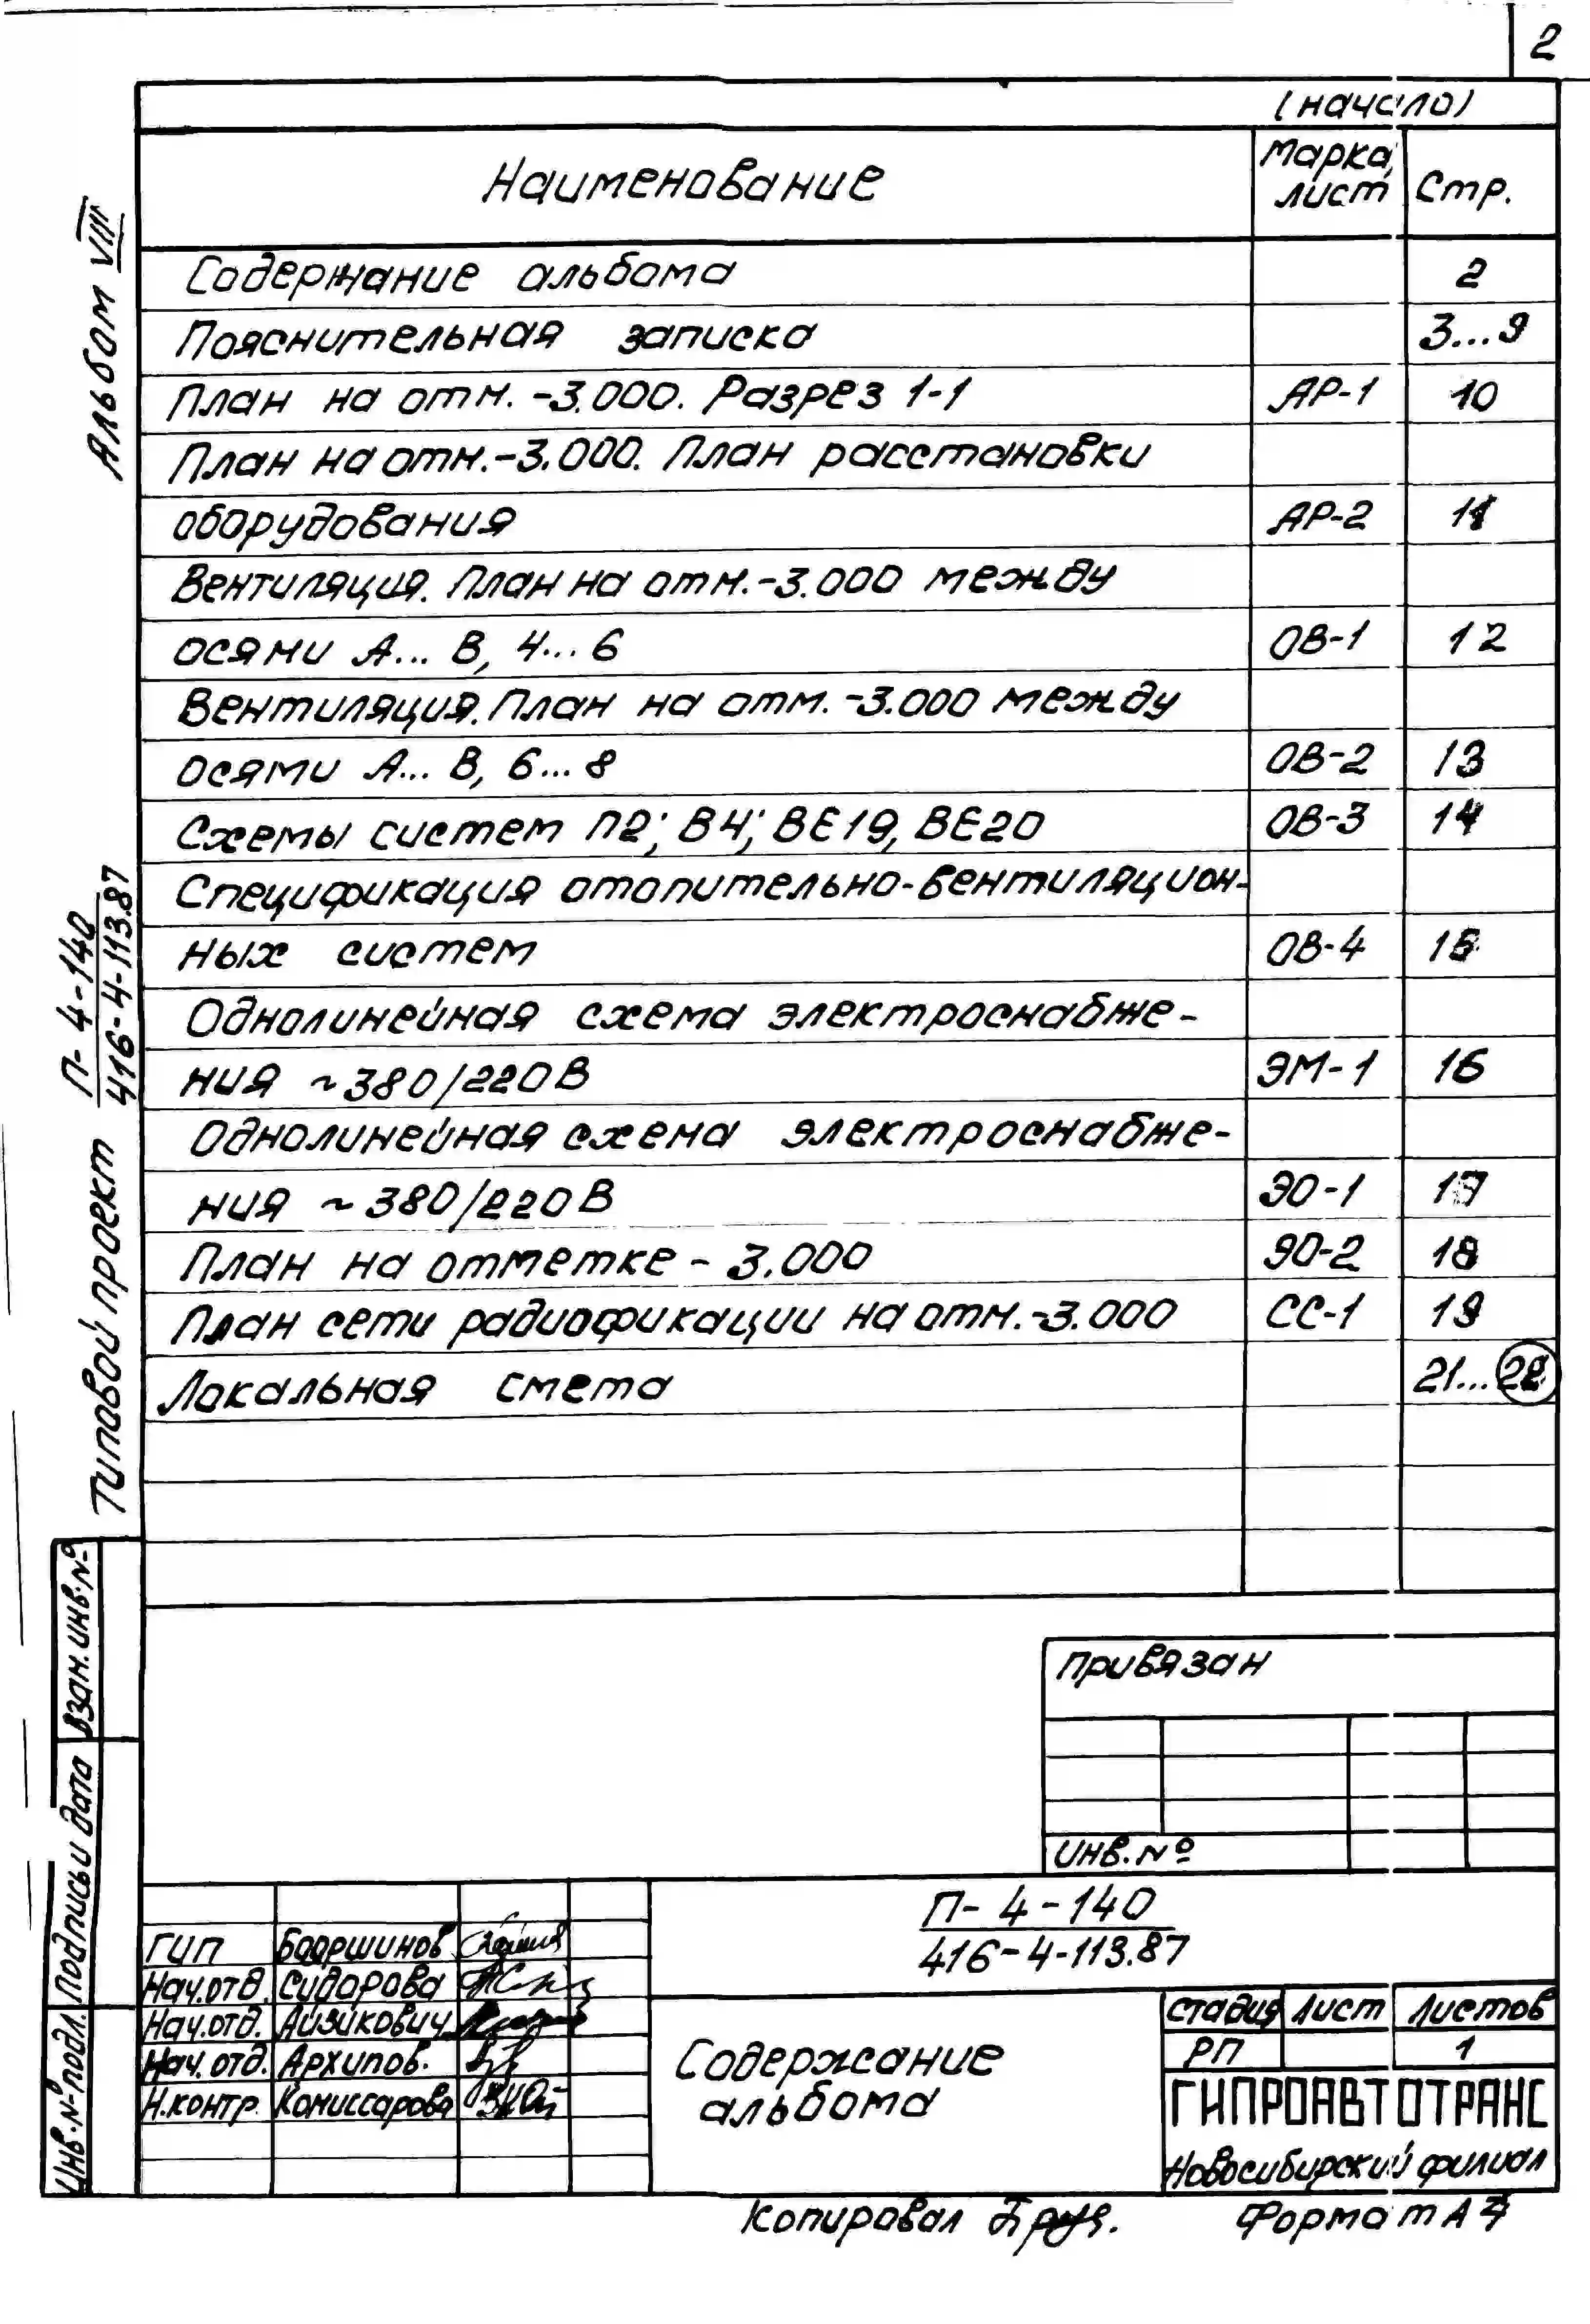 2
(начало)
Наименование
Марка,
лист
Стр.
Содержание альбома 2
Пояснительная записка 3...9
План на отм. -3.000. Разрез 1-1 АР-1 10
План на отм.-3.000. План расстановки
оборудования АР-2 11
Вентиляция. План на отм.-3.000 между
осями А... В, 4... 6 ОВ-1 12
Вентиляция. План на отм. -3.000 между
осями А... В, 6... 8 ОВ-2 13
Схемы систем П2; В4; ВЕ19, ВЕ20 ОВ-3 14
Спецификация отопительно-вентиляцион-
ных систем ОВ-4 15
Однолинейная схема электроснабже-
ния ~380/220В ЭМ-1 16
Однолинейная схема электроснабже-
ния ~380/220В ЭО-1 17
План на отметке - 3.000 ЭО-2 18
План сети радиофикации на отм.-3.000 СС-1 19
Локальная смета 21...28
Альбом VIII
Типовой проект П-4-140
416-4-113.87
Взам.инв.№
Подпись и дата
Инв.№подл.
Привязан
Инв.№
П- 4 -140
416-4-113.87
ГИП
Нач.отд. Сидорова
Нач.отд. Айзикович
Нач.отд. Архипов.
Н.контр. Комиссарова
Содержание
альбома
Стадия Лист Листов
РП 1
ГИПРОАВТОТРАНС
Новосибирский филиал
Копировал
Формат А4